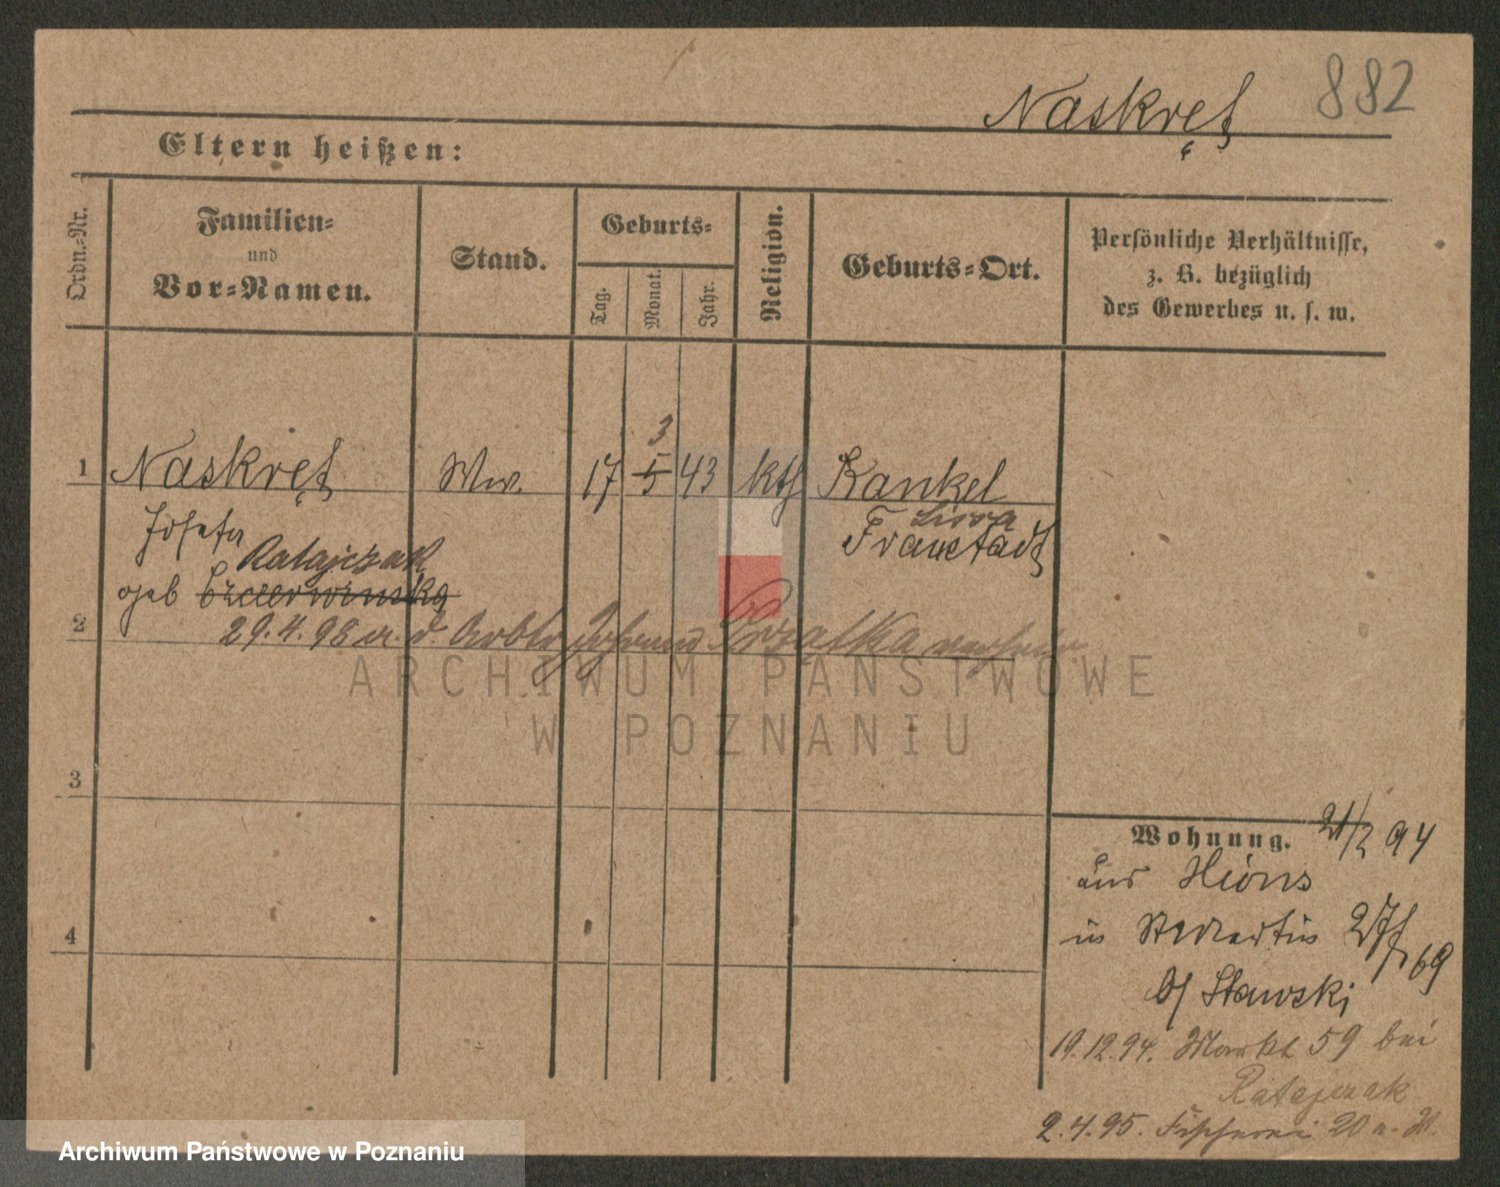 882
Naskręt
Eltern heißen:
Ordn.-Nr.
Familien-
und
Vor-Namen.
Stand.
Geburts-
Tag.
Monat.
Jahr.
Religion.
Geburts-Ort.
Persönliche Verhältnisse,
z. B. bezüglich
des Gewerbes u. s. w.
3
1 Naskręt Ww. 17 5 43 kth Kankel
Lissa
Josefa Fraustadt
Ratajczak
geb
2 29.4.98 m. d.
ARCHIWUM PAŃSTWOWE
W POZNANIU
3
4
Wohnung. 21/2 94
aus Xions
in St Martin 27
69
b/ Stawski
19.12.94. Markt 59 bei
Ratajczak
2.4.95. Fischerei 20
Archiwum Państwowe w Poznaniu